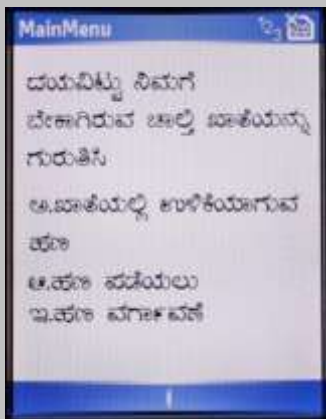 MainMenu
ದಯವಿಟ್ಟು ನಿಮಗೆ
ಬೇಕಾಗಿರುವ ಚಾಲ್ತಿ ಖಾತೆಯನ್ನು
ಗುರುತಿಸಿ
ಅ.ಖಾತೆಯಲ್ಲಿ ಉಳಿಕೆಯಾಗುವ
ಹಣ
ಆ.ಹಣ ಪಡೆಯಲು
ಇ.ಹಣ ವರ್ಗಾವಣೆ